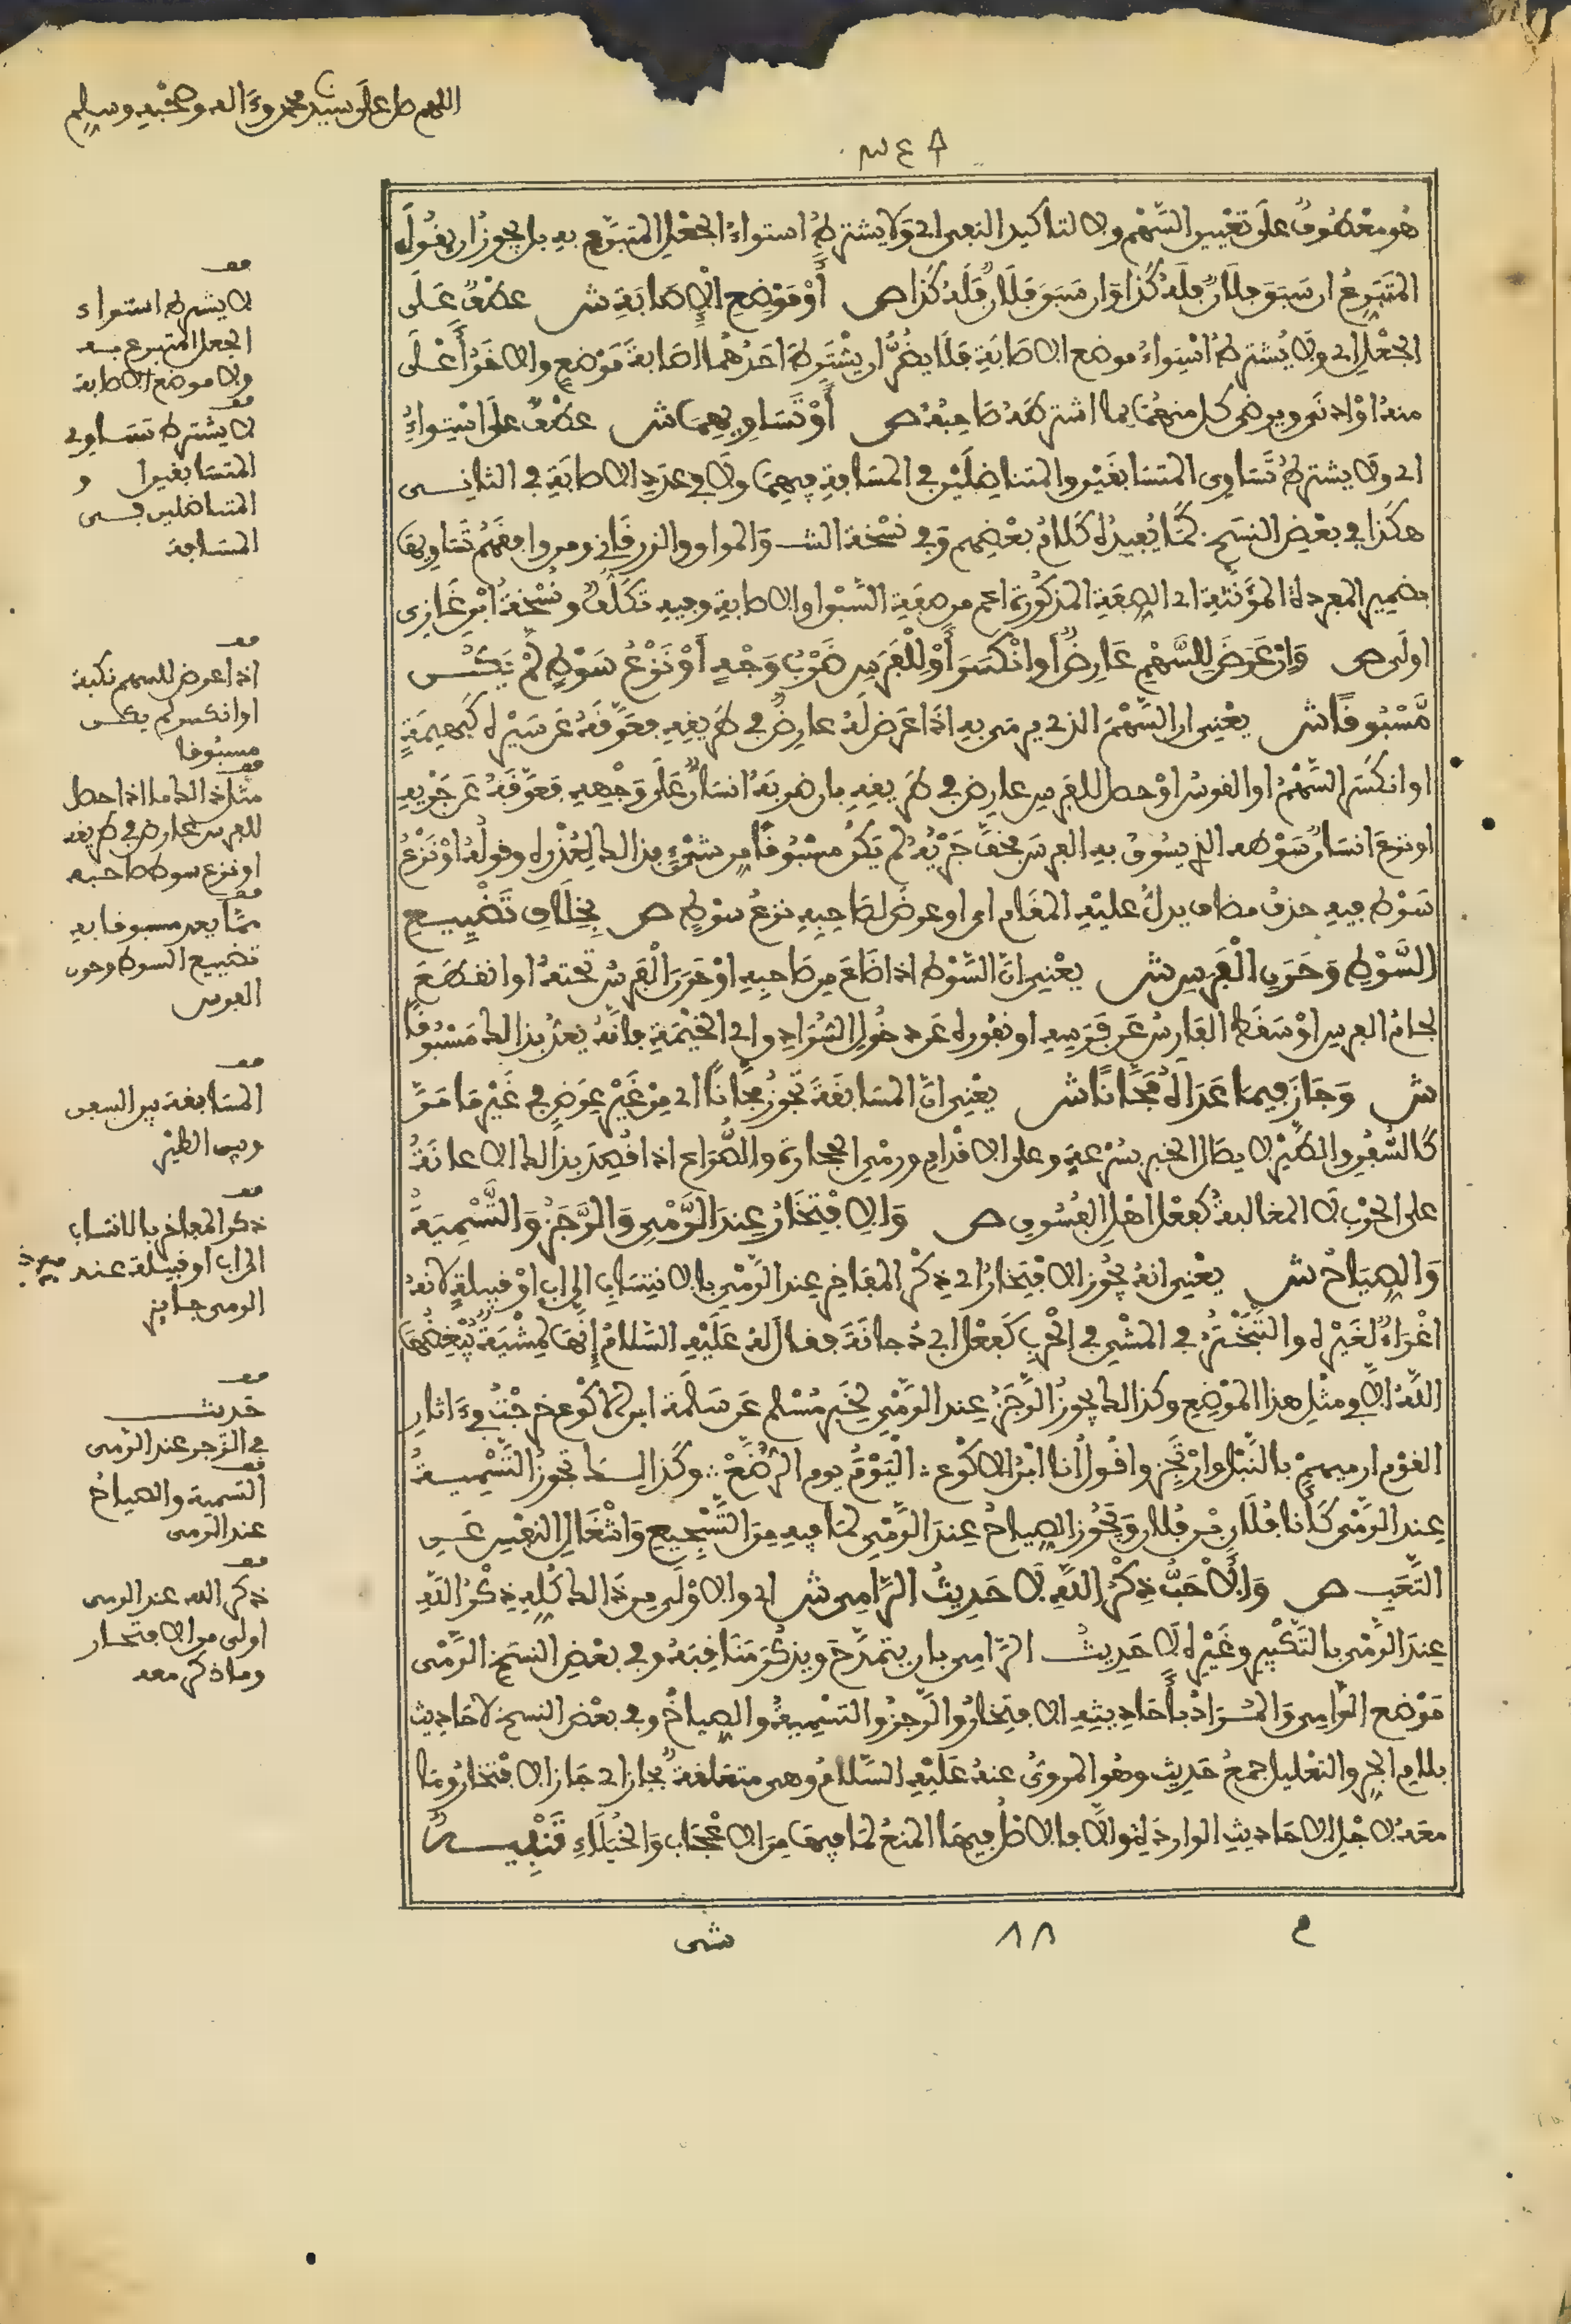 اللهم صل على سيدنا محمد وءاله وصحبه وسلم
هو معطوف على تعيين السهم ولا لتاكيد النفي اي ولا يشترط استواء الجعل المتبرع به بل يجوز ان يقول
المتبرع ان سبق فلان فله كذا وان سبق فلان فله كذا ص أو موضع الإصابة ش عطف على
الجعل اي ولا يشترط استواء موضع الاصابة فلا يضر ان يشترط احدهما اصابة موضع والاخر أعلى
منه او ادنى ويرضى كل منهما بما اشترطه صاحبه ص أو تساويهما ش عطف على استواء
اي ولا يشترط تساوي المتسابقين والمتناضلين في المسافة فيهما ولا في عدد الاصابة في الثاني
هكذا في بعض النسخ كما يفيده كلام بعضهم وفي نسخة الش والمواق والزرقاني ومن وافقهم تساويها
بضمير المفردة المؤنثة اي الصفة المذكورة اعم من صفة السبق او الاصابة وفيه تكلف ونسخة ابن غازي
اولى ص وإن عرض للسهم عارض أو انكسر أو للفرس ضرب وجه أو نزع سوط لم يكن
مسبوقا ش يعني ان السهم الذي يرمى به اذا عرض له عارض في طريقه فعوقه عن سيره كبهيمة
او انكسر السهم او القوس او حصل للفرس عارض في طريقه بان ضربه انسان على وجهه فعوقه عن جريه
او نزع انسان سوطه الذي يسوق به الفرس فخف جريه لم يكن مسبوقا من شيء من ذلك لعذره وقوله او نزع
سوط فيه حذف مضاف يدل عليه المقام اي او عرض لصاحبه نزع سوط ص بخلاف تضييع
السوط وحرن الفرس ش يعني ان السوط اذا ضاع من صاحبه او حرن الفرس تحته او انقطع
لجام الفرس او سقط الفارس عن فرسه او نفوره عن دخول السرادق اي الخيمة فانه يعد بذلك مسبوقا
ش وجاز فيما عداه مجانا ش يعني ان المسابقة تجوز مجانا اي من غير عوض في غير ما مر
كالسفن والطير لايصال الخبر بسرعة وعلى الاقدام ورمي الحجارة والصراع اذا قصد بذلك الاعانة
على الحرب لا المغالبة كفعل اهل الفسوق ص والافتخار عند الرمي والرجز والتسمية
والصياح ش يعني انه يجوز الافتخار اي ذكر المفاخر عند الرمي بالانتساب الى اب او قبيلة لانه
اغراء لغيره والتبختر في المشي في الحرب كفعل ابي دجانة فقال له عليه السلام إنها لمشية يبغضها
الله الا في مثل هذا الموضع وكذلك يجوز الرجز عند الرمي لخبر مسلم عن سلمة ابن الاكوع خرجت في ءاثار
القوم ارميهم بالنبل وارتجز واقول أنا ابن الاكوع ∴ اليوم يوم الرضع ∴ وكذلك تجوز التسمية
عند الرمي كأنا فلان بن فلان ويجوز الصياح عند الرمي لما فيه من التشجيع واشغال النفس عن
التعب ص والاحب ذكر الله لا حديث الرامي ش اي والاولى من ذلك كله ذكر الله
عند الرمي بالتكبير وغيره لا حديث الرامي بان يتمدح ويذكر مناقبه وفي بعض النسخ الرمي
موضع الرامي والمراد بأحاديثه الافتخار والرجز والتسمية والصياح وفي بعض النسخ لاحاديث
بلام الجر والتعليل جمع حديث وهو المروي عنه عليه السلام وهي متعلقة بجاز اي جاز الافتخار وما
معه لاجل الاحاديث الواردة لتوالا فالاصل فيها المنع لما فيها من الاعجاب والخيلاء تنبيه
شي
قف
لا يشترط استواء
الجعل المتبرع به
ولا موضع الاصابة
قف
لا يشترط تساوي
المتسابقين و
المتناضلين في
المسافة
قف
اذا عرض للسهم نكبة
او انكسر لم يكن
مسبوقا
قف
مثل ذلك ما اذا حصل
للفرس عارض في طريقه
او نزع سوط صاحبه
قف
مما يعد مسبوقا به
تضييع السوط وحرن
الفرس
قف
المسابقة بين السفن
وبين الطير
قف
ذكر المفاخر بالانتساب
الى اب او قبيلة عند
الرمي جايز
قف
حديث
في الرجز عند الرمي
قف
التسمية والصياح
عند الرمي
قف
ذكر الله عند الرمي
اولى من الافتخار
وما ذكر معه